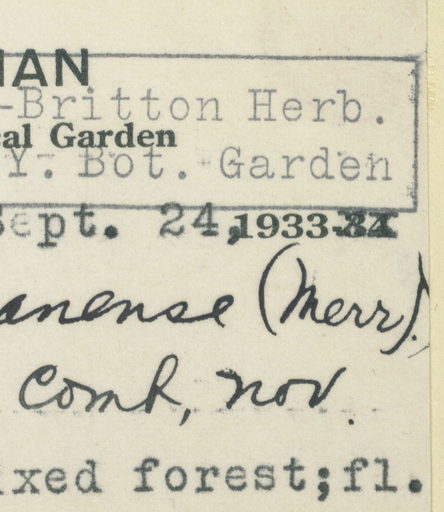 IAN
-Britton Herb.
cal Garden
Y. Bot. Garden
Sept. 24, 1933-34
anense (Merr).
Comb, nov.
ixed forest;fl.